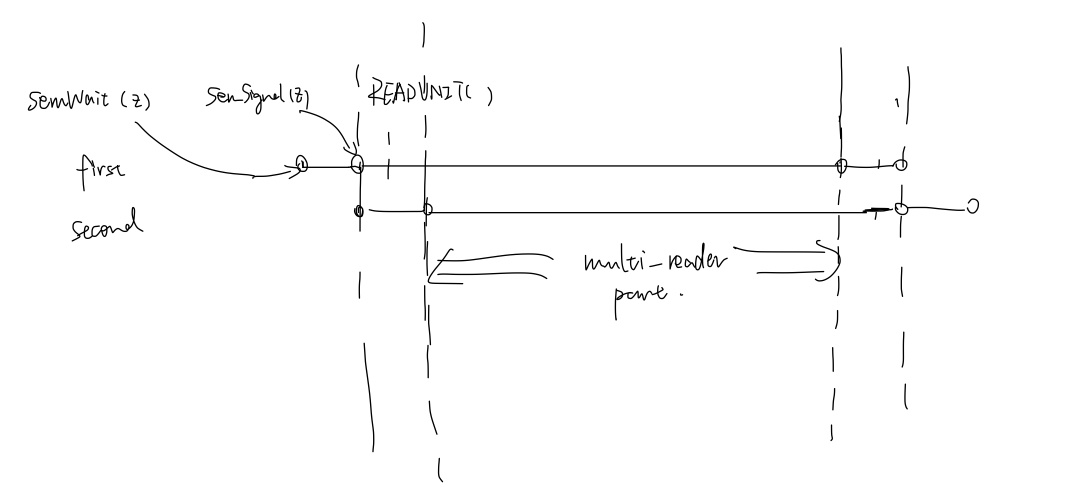 SemWait (z)
SemSignal(z)
READUNIT( )
first
second
multi-reader
part.